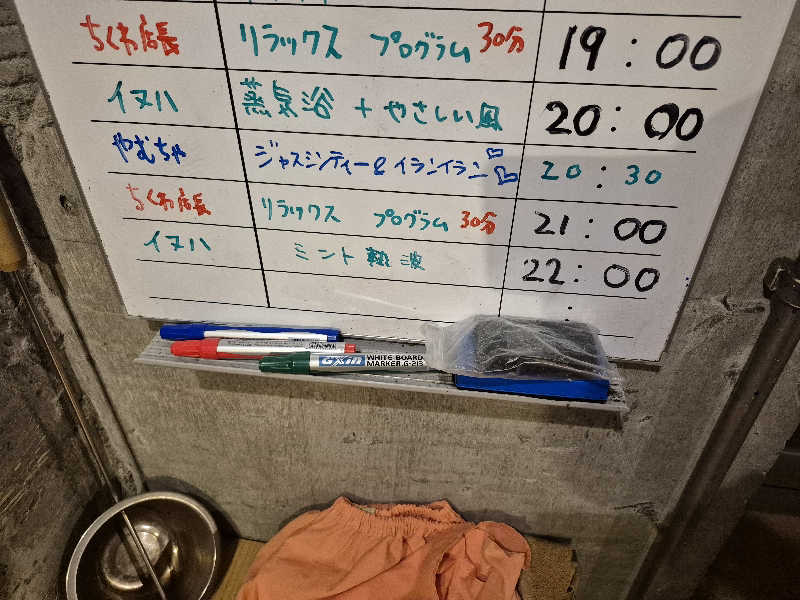 ちくわ店長 リラックス プログラム 30分 19:00
イヌハ 蒸気浴 + やさしい風 20:00
やむちゃ ジャスミンティー & イランイラン♡♡ 20:30
ちくわ店長 リラックス プログラム 30分 21:00
イヌハ ミント 熱波 22:00
:
GXin WHITE BOARD
MARKER.G-213